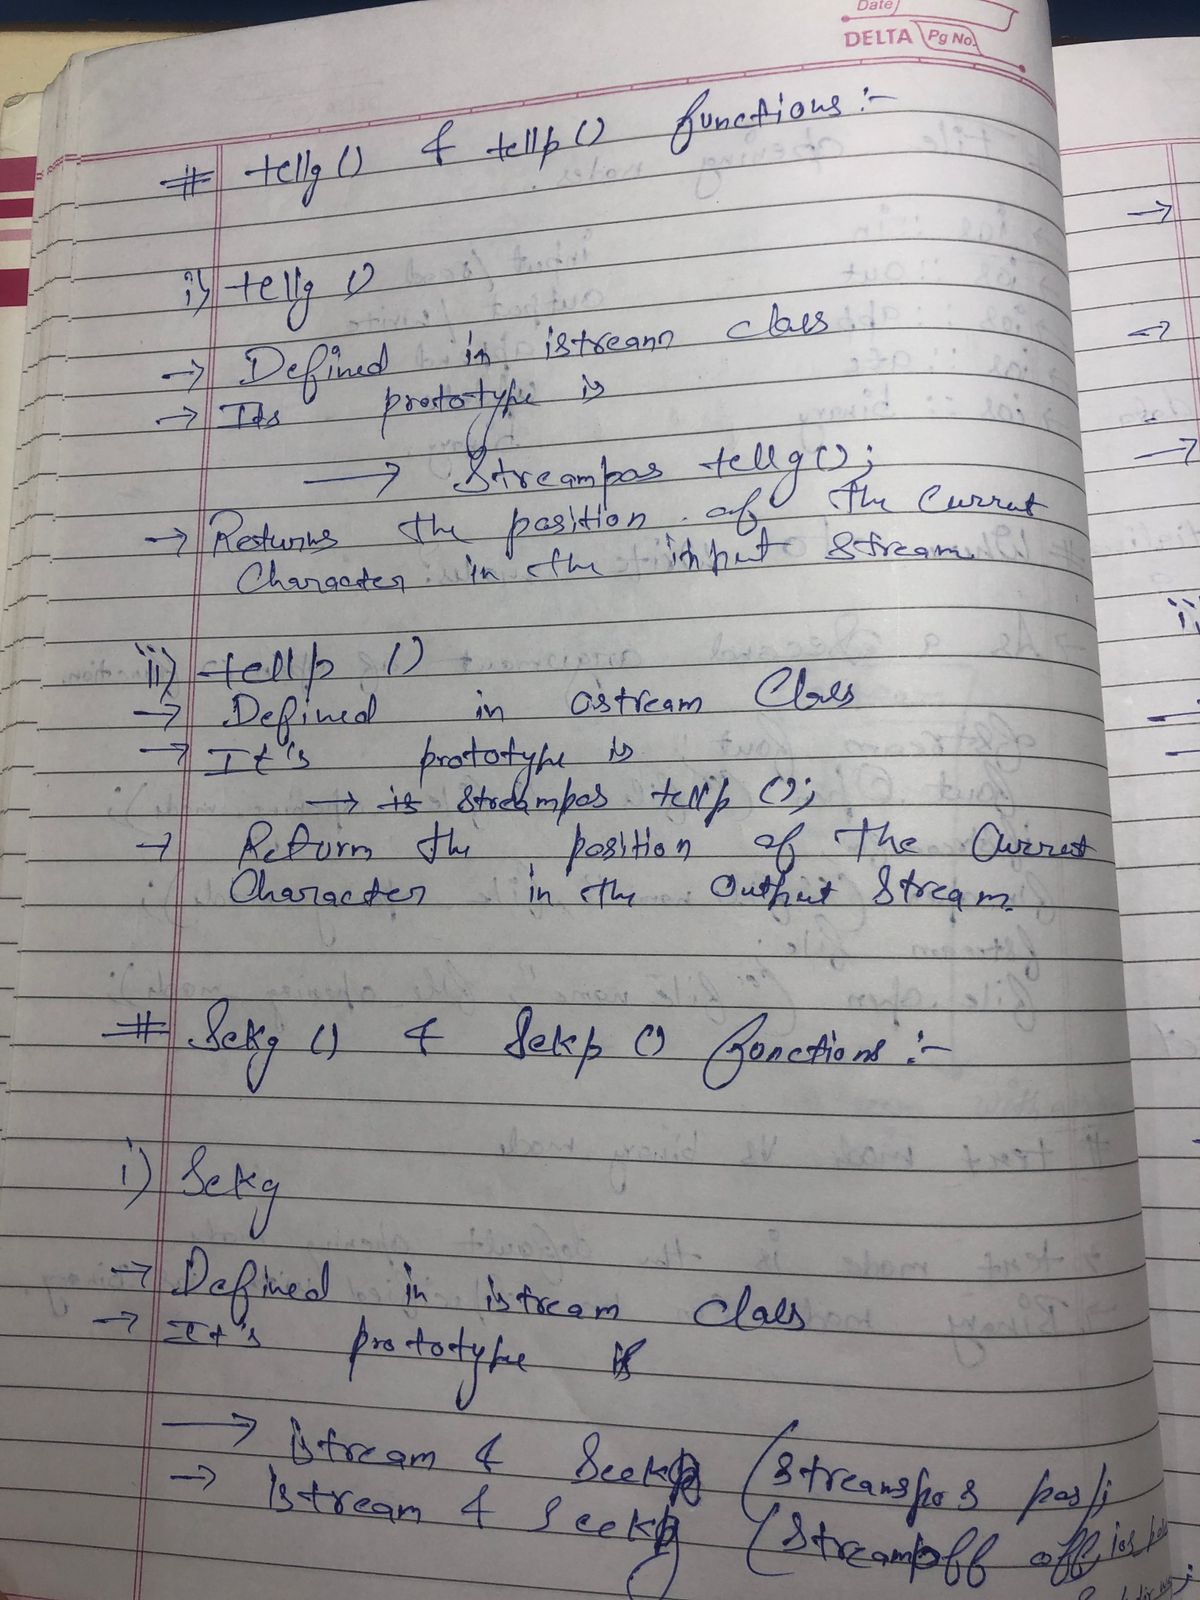 Date
DELTA Pg No.
# tellg () & tellp () functions :-
i) tellg ()
→ Defined in istream class
→ Its prototype is
→ Streampos tellg();
→ Returns the position of the Current
Character in the input Stream.
ii) tellp ()
→ Defined in ostream Class
→ It's prototype is
→ is streampos tellp ();
→ Return the position of the Current
Character in the Output Stream.
# Sekg () & Sekp () functions :-
i) Sekg
→ Defined in istream Class
→ It's prototype is
→ istream & Seekg (Streampos pos);
→ istream & Seekg (Streamoff off, ios